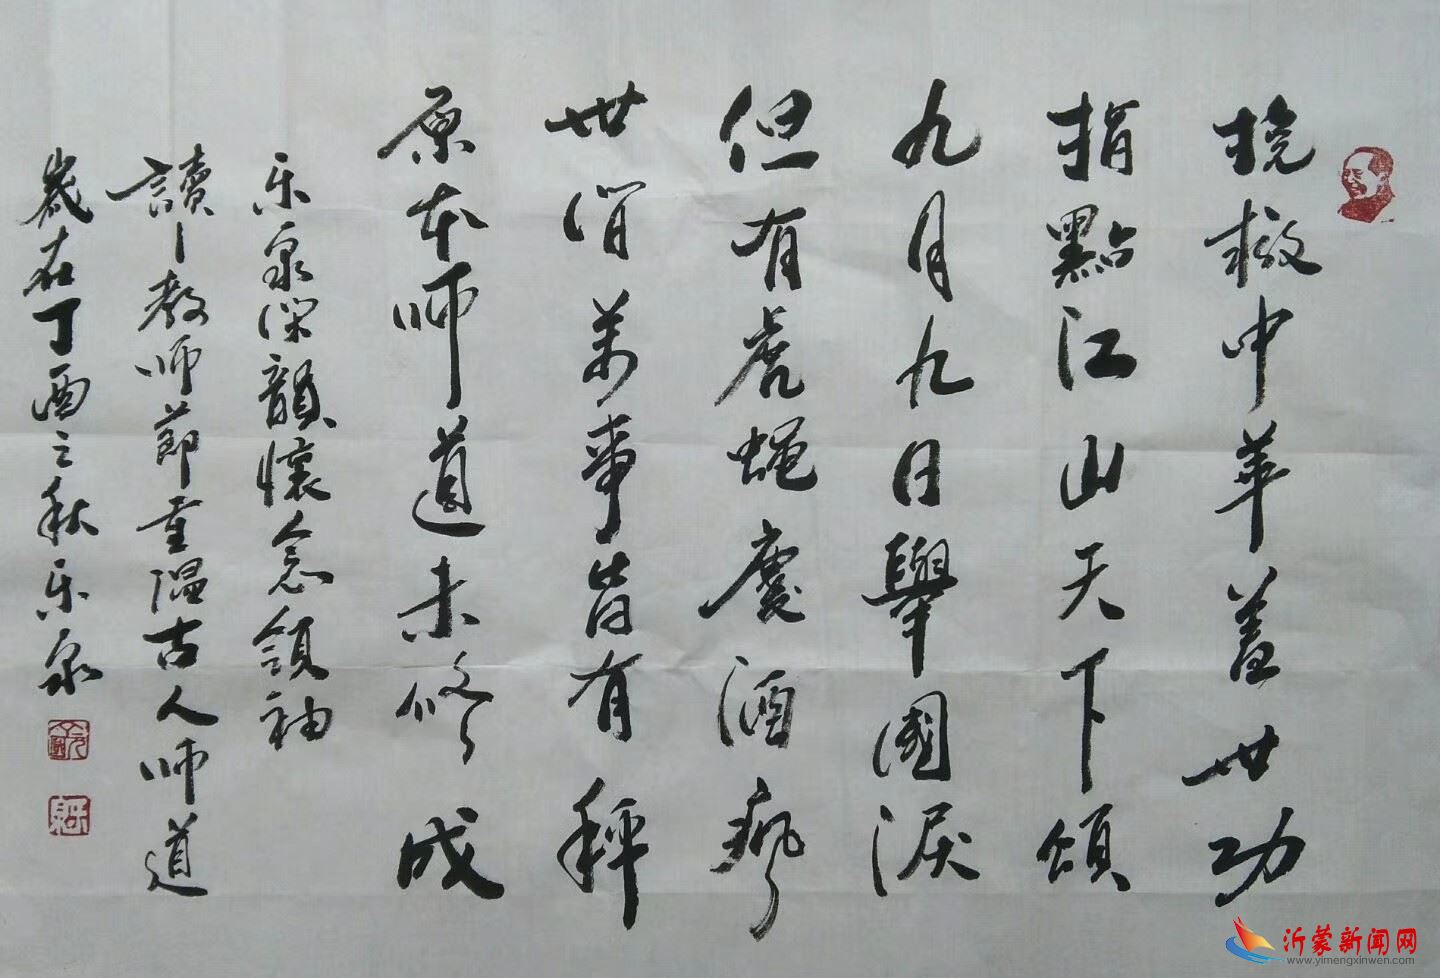 挽救中華蓋世功
指點江山天下頌
九月九日舉國淚
但有虎蠅慶酒瘋
世间萬事皆有秤
原本师道未修成
乐泉深韻懷念領袖
讀教师節重温古人师道
歲在丁酉之秋乐泉
沂蒙新闻网
www.yimengxinwen.com